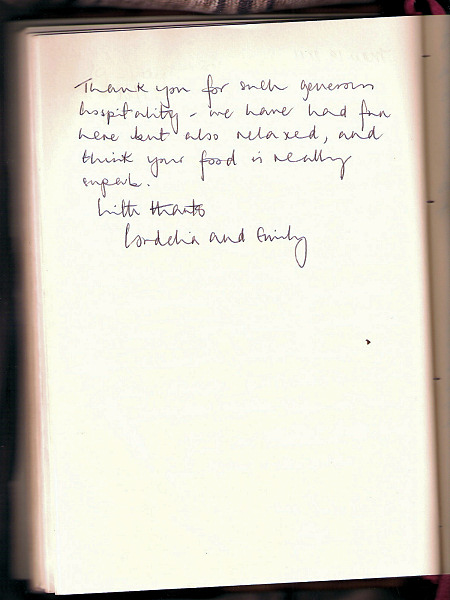 Thank you for such generous
hospitality - we have had fun
here but also relaxed, and
think your food is really
superb.
With thanks
Cordelia and Emily